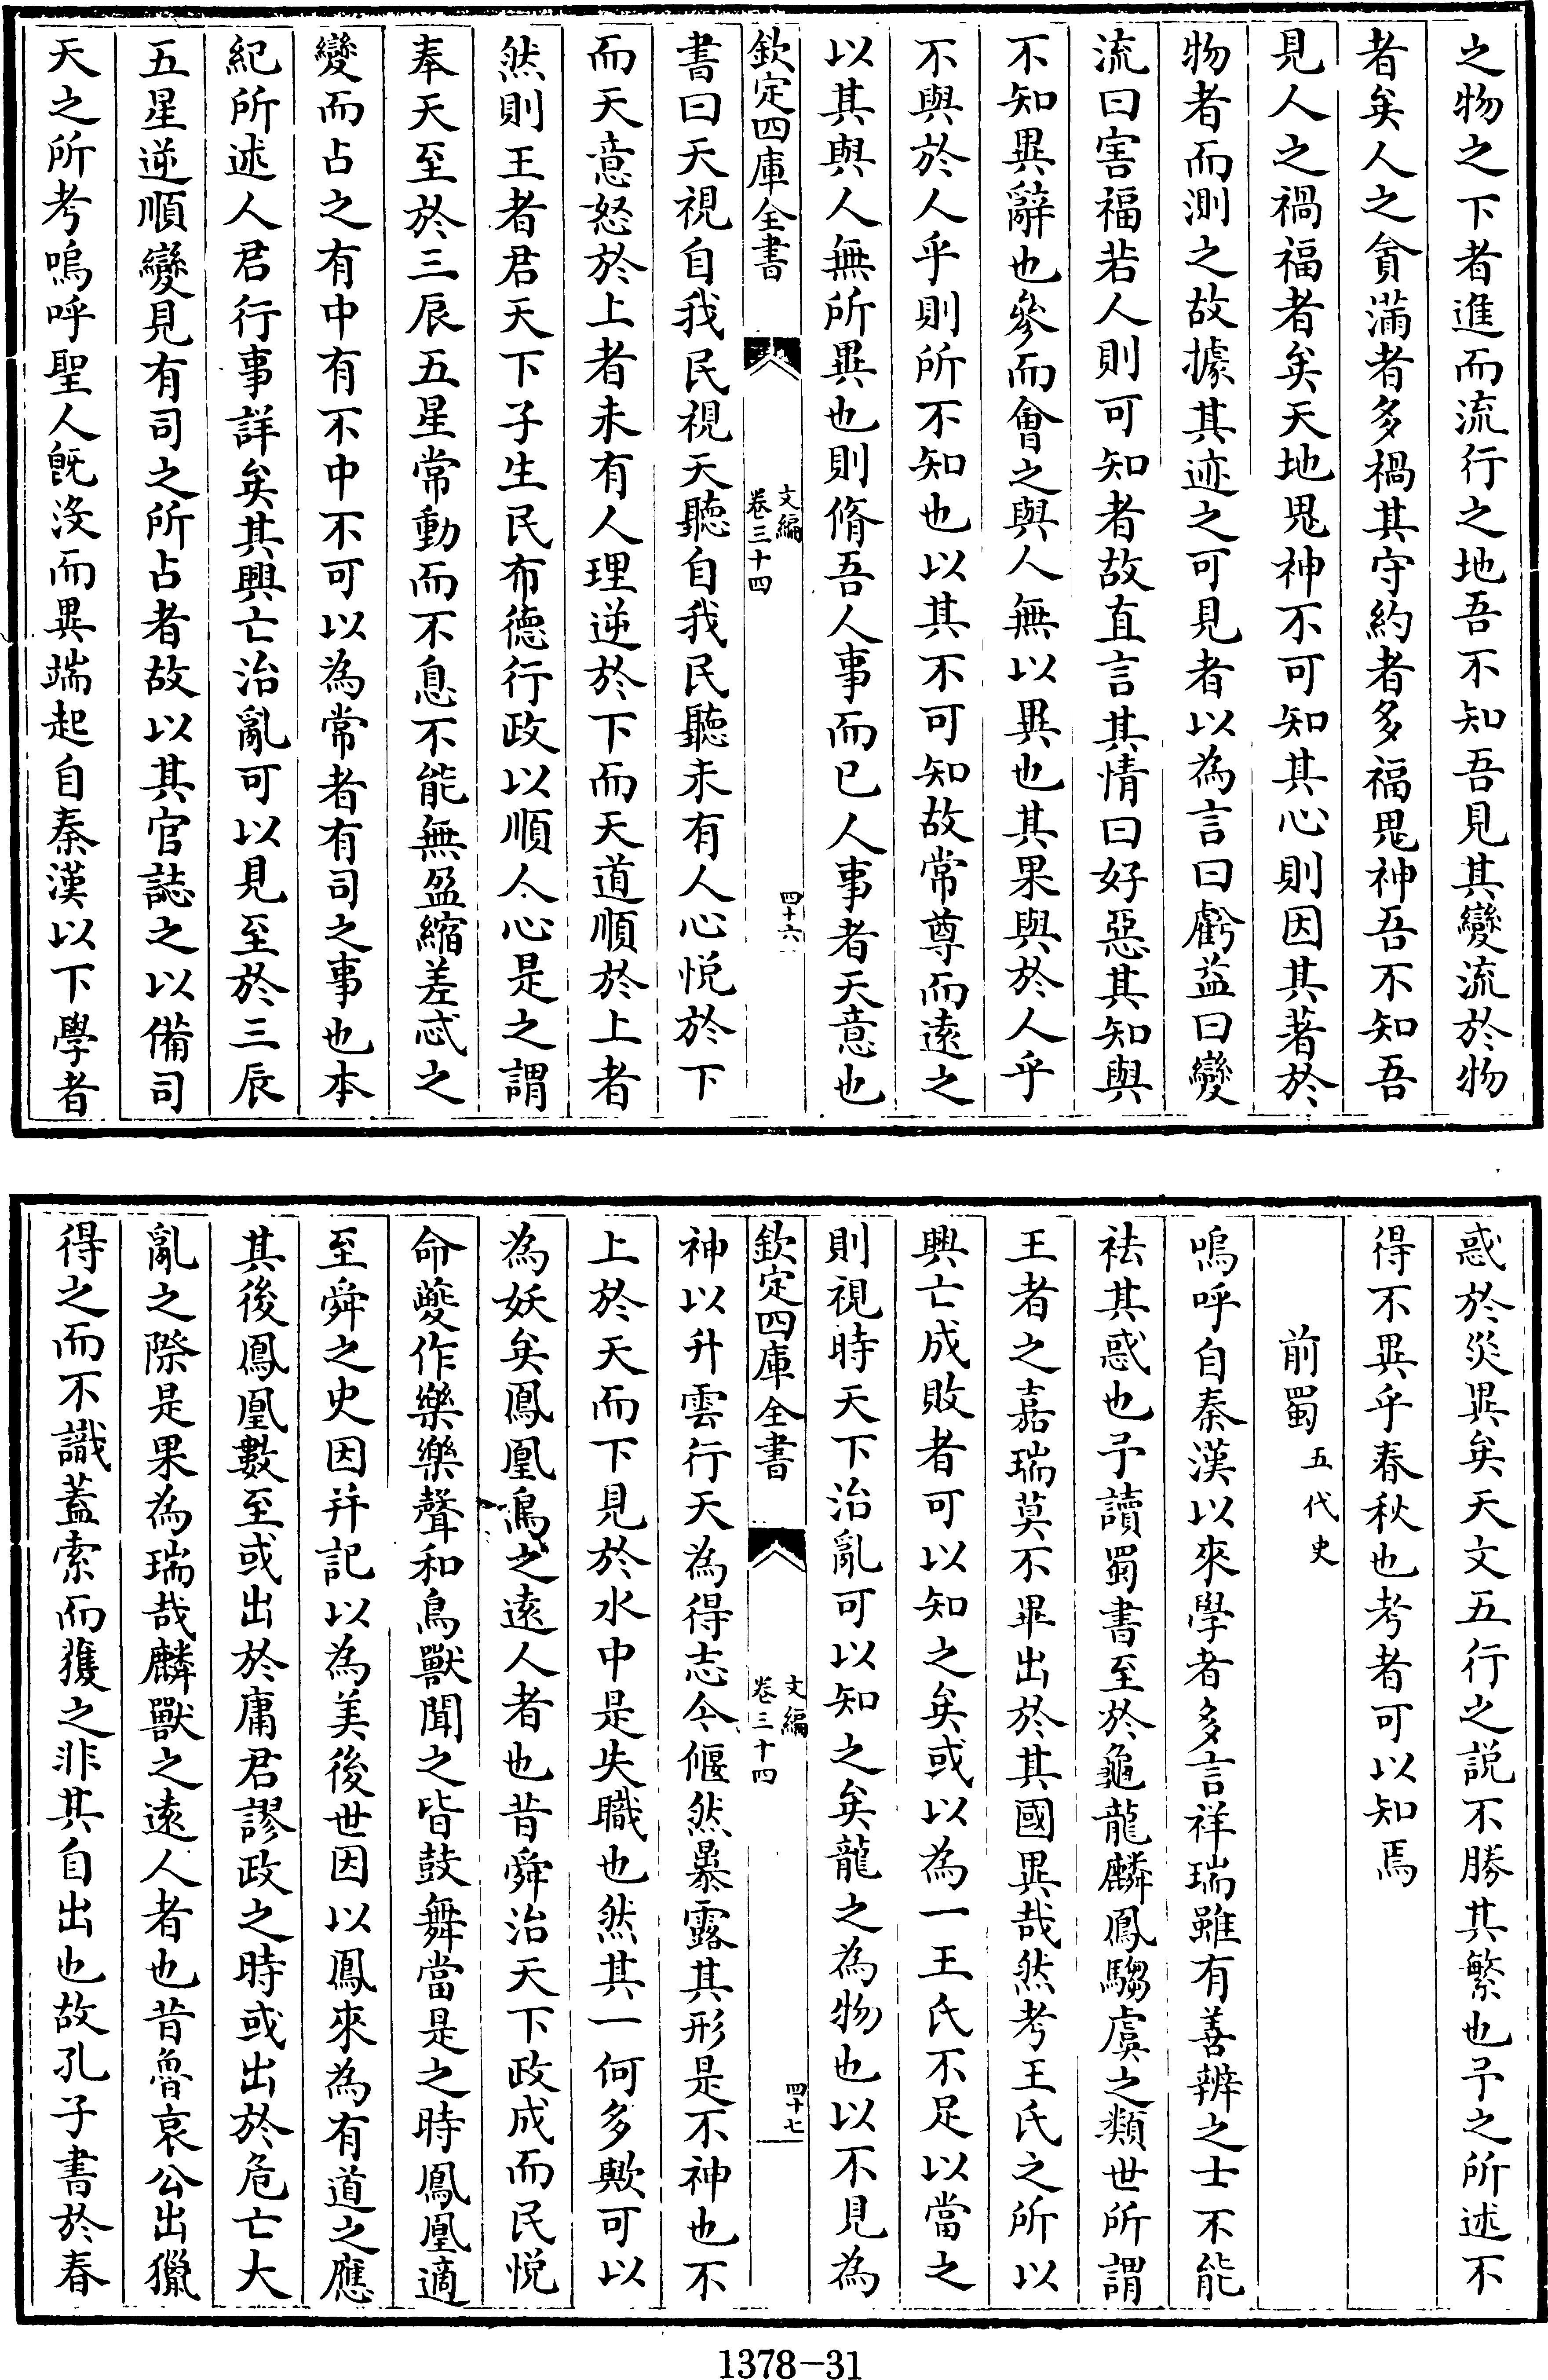 之物之下者進而流行之地吾不知吾見其變流於物
者矣人之貪滿者多禍其守約者多福鬼神吾不知吾
見人之禍福者矣天地鬼神不可知其心則因其著於
物者而測之故據其迹之可見者以為言曰虧益曰變
流曰害福若人則可知者故直言其情曰好惡其知與
不知異辭也參而會之與人無以異也其果與於人乎
不與於人乎則所不知也以其不可知故常尊而遠之
以其與人無所異也則脩吾人事而已人事者天意也
欽定四庫全書
文編
卷三十四
四十六
書曰天視自我民視天聽自我民聽未有人心悅於下
而天意怒於上者未有人理逆於下而天道順於上者
然則王者君天下子生民布德行政以順人心是之謂
奉天至於三辰五星常動而不息不能無盈縮差忒之
變而占之有中有不中不可以為常者有司之事也本
紀所述人君行事詳矣其興亡治亂可以見至於三辰
五星逆順變見有司之所占者故以其官誌之以備司
天之所考嗚呼聖人旣沒而異端起自秦漢以下學者
惑於災異矣天文五行之說不勝其繁也予之所述不
得不異乎春秋也考者可以知焉
前蜀 五代史
嗚呼自秦漢以來學者多言祥瑞雖有善辨之士不能
祛其惑也予讀蜀書至於龜龍麟鳳騶虞之類世所謂
王者之嘉瑞莫不畢出於其國異哉然考王氏之所以
興亡成敗者可以知之矣或以為一王氏不足以當之
則視時天下治亂可以知之矣龍之為物也以不見為
欽定四庫全書
文編
卷三十四
四十七
神以升雲行天為得志今偃然暴露其形是不神也不
上於天而下見於水中是失職也然其一何多歟可以
為妖矣鳳凰鳥之遠人者也昔舜治天下政成而民悅
命夔作樂樂聲和鳥獸聞之皆鼓舞當是之時鳳凰適
至舜之史因并記以為美後世因以鳳來為有道之應
其後鳳凰數至或出於庸君謬政之時或出於危亡大
亂之際是果為瑞哉麟獸之遠人者也昔魯哀公出獵
得之而不識蓋索而獲之非其自出也故孔子書於春
1378-31